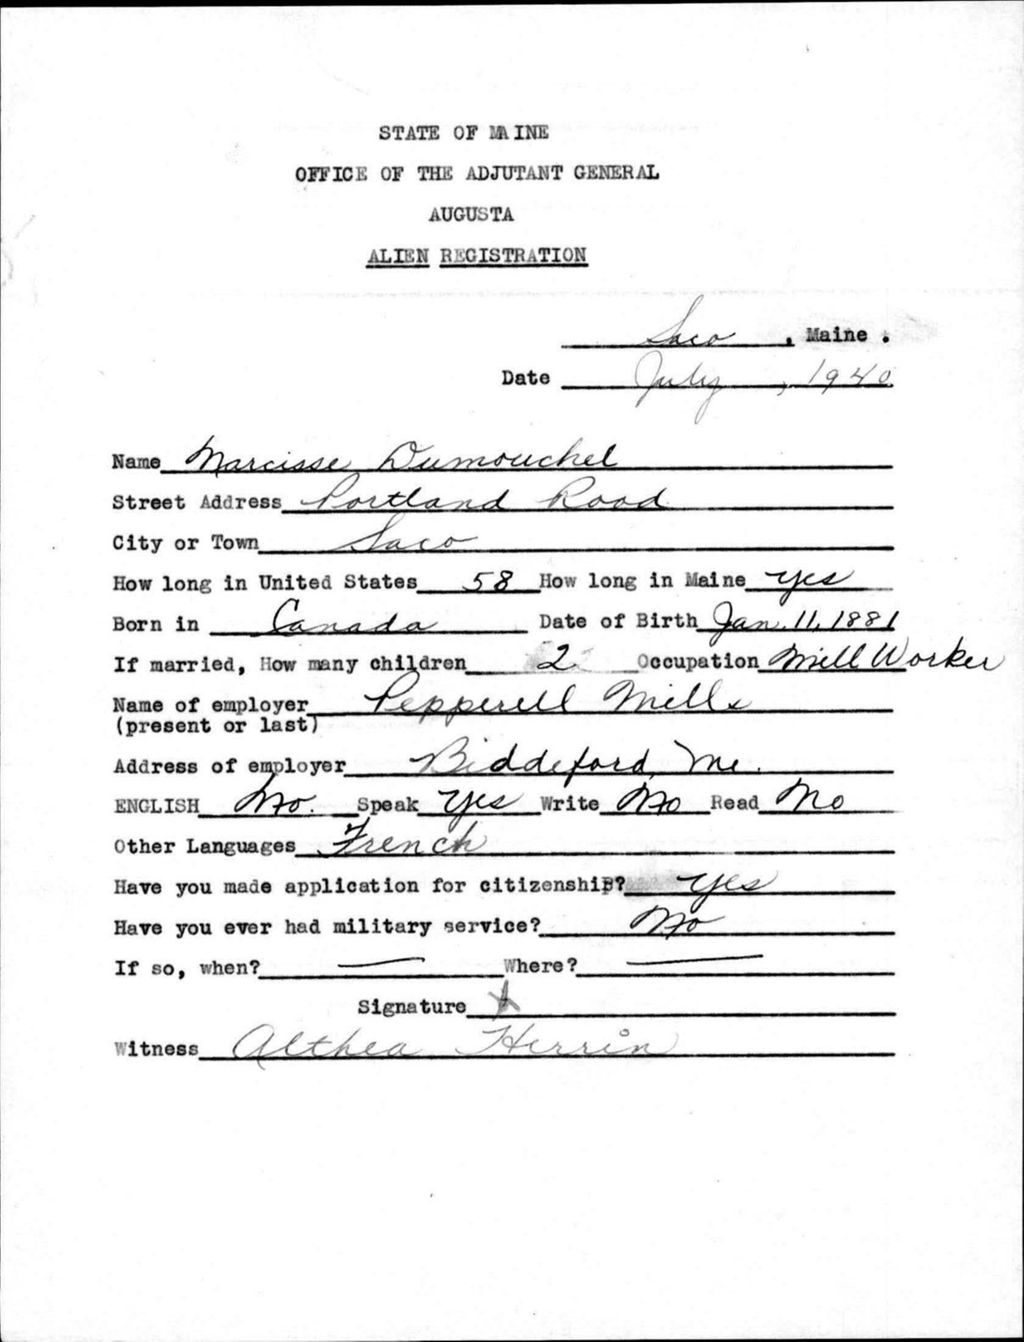 STATE OF MAINE
OFFICE OF THE ADJUTANT GENERAL
AUGUSTA
ALIEN REGISTRATION
Saco, Maine.
Date July, 1940
Name Narcisse Dumouchel
Street Address Portland Road
City or Town Saco
How long in United States 58 How long in Maine yes
Born in Canada Date of Birth Jan. 11, 1881
If married, How many children 2 Occupation Mill Worker
Name of employer Pepperell Mills
(present or last)
Address of employer Biddeford, Me.
ENGLISH No. Speak Yes Write No Read No
Other Languages French
Have you made application for citizenship? Yes
Have you ever had military service? No
If so, when? — Where? —
Signature X
Witness Althea Herrin